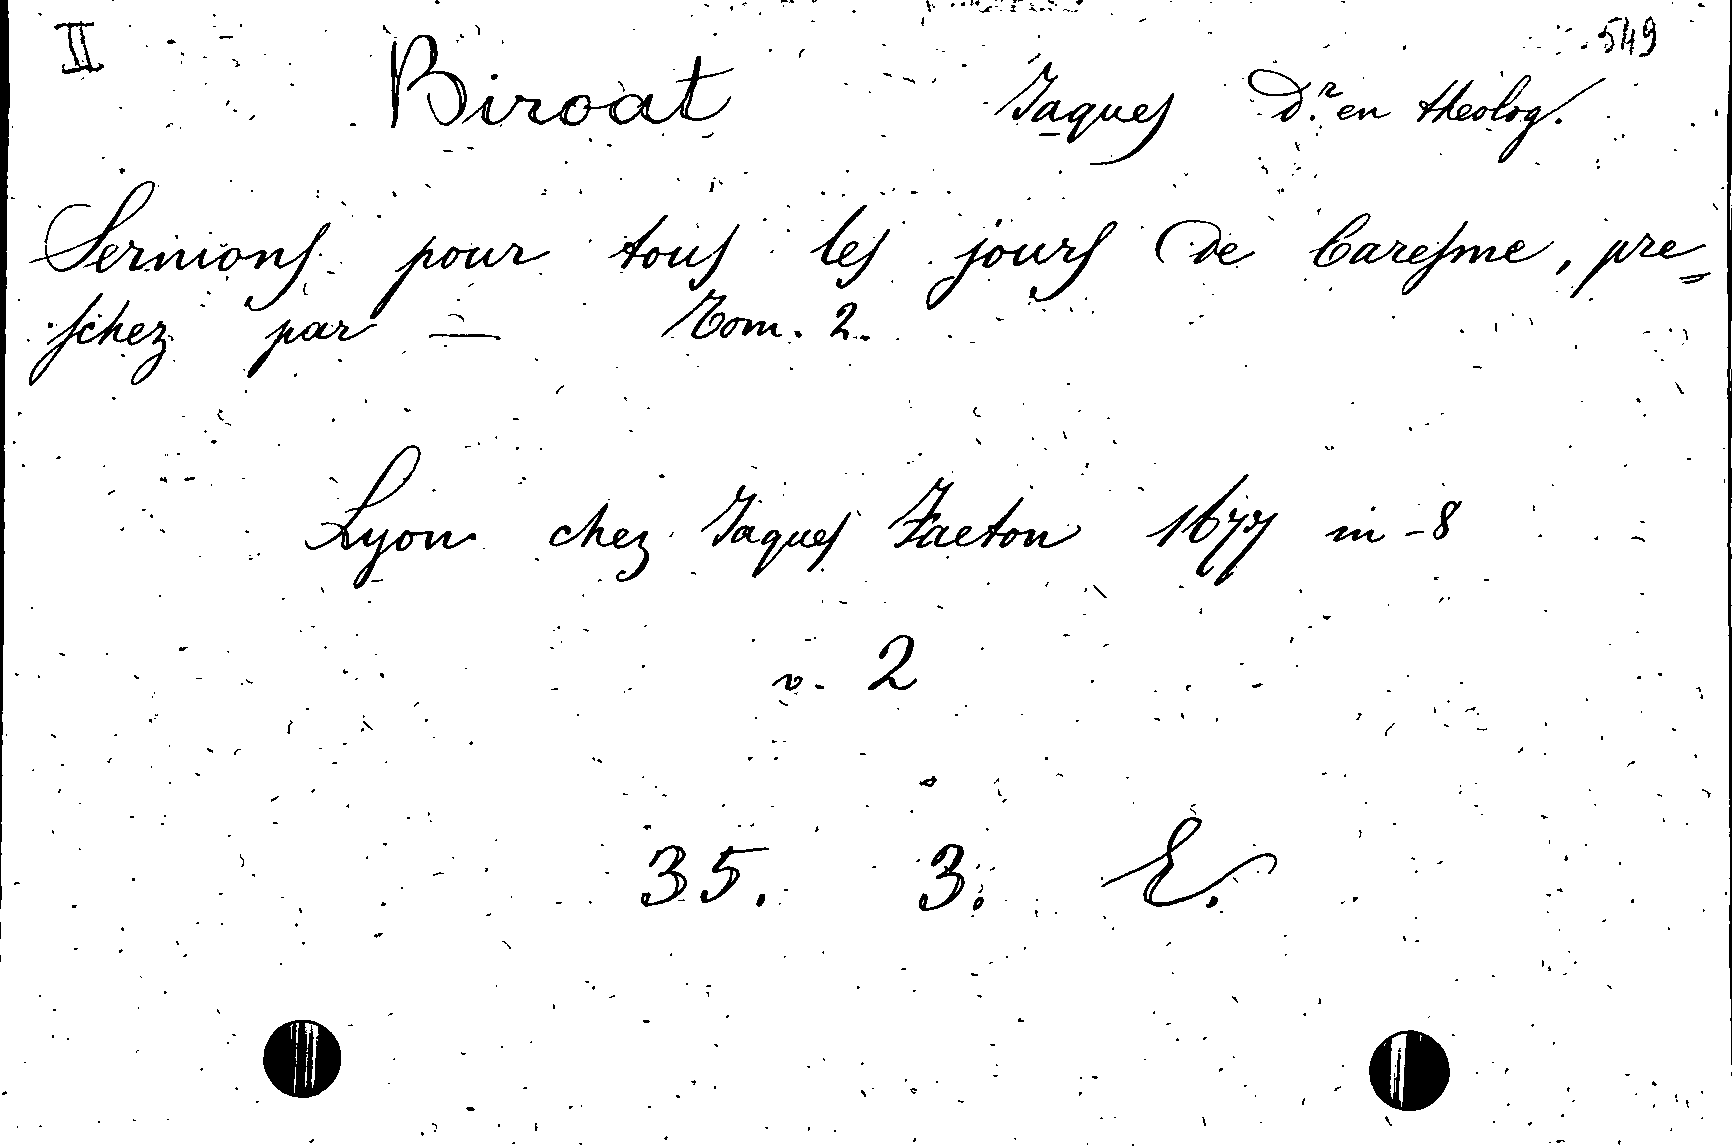 II 549
Biroat Jaques D.r en theolog.
Sermons pour tous les jours de Caresme, pre=
schez par — Tom. 2.
Lyon chez Jaques Faeton 1677 in-8
v. 2
35. 3. E.